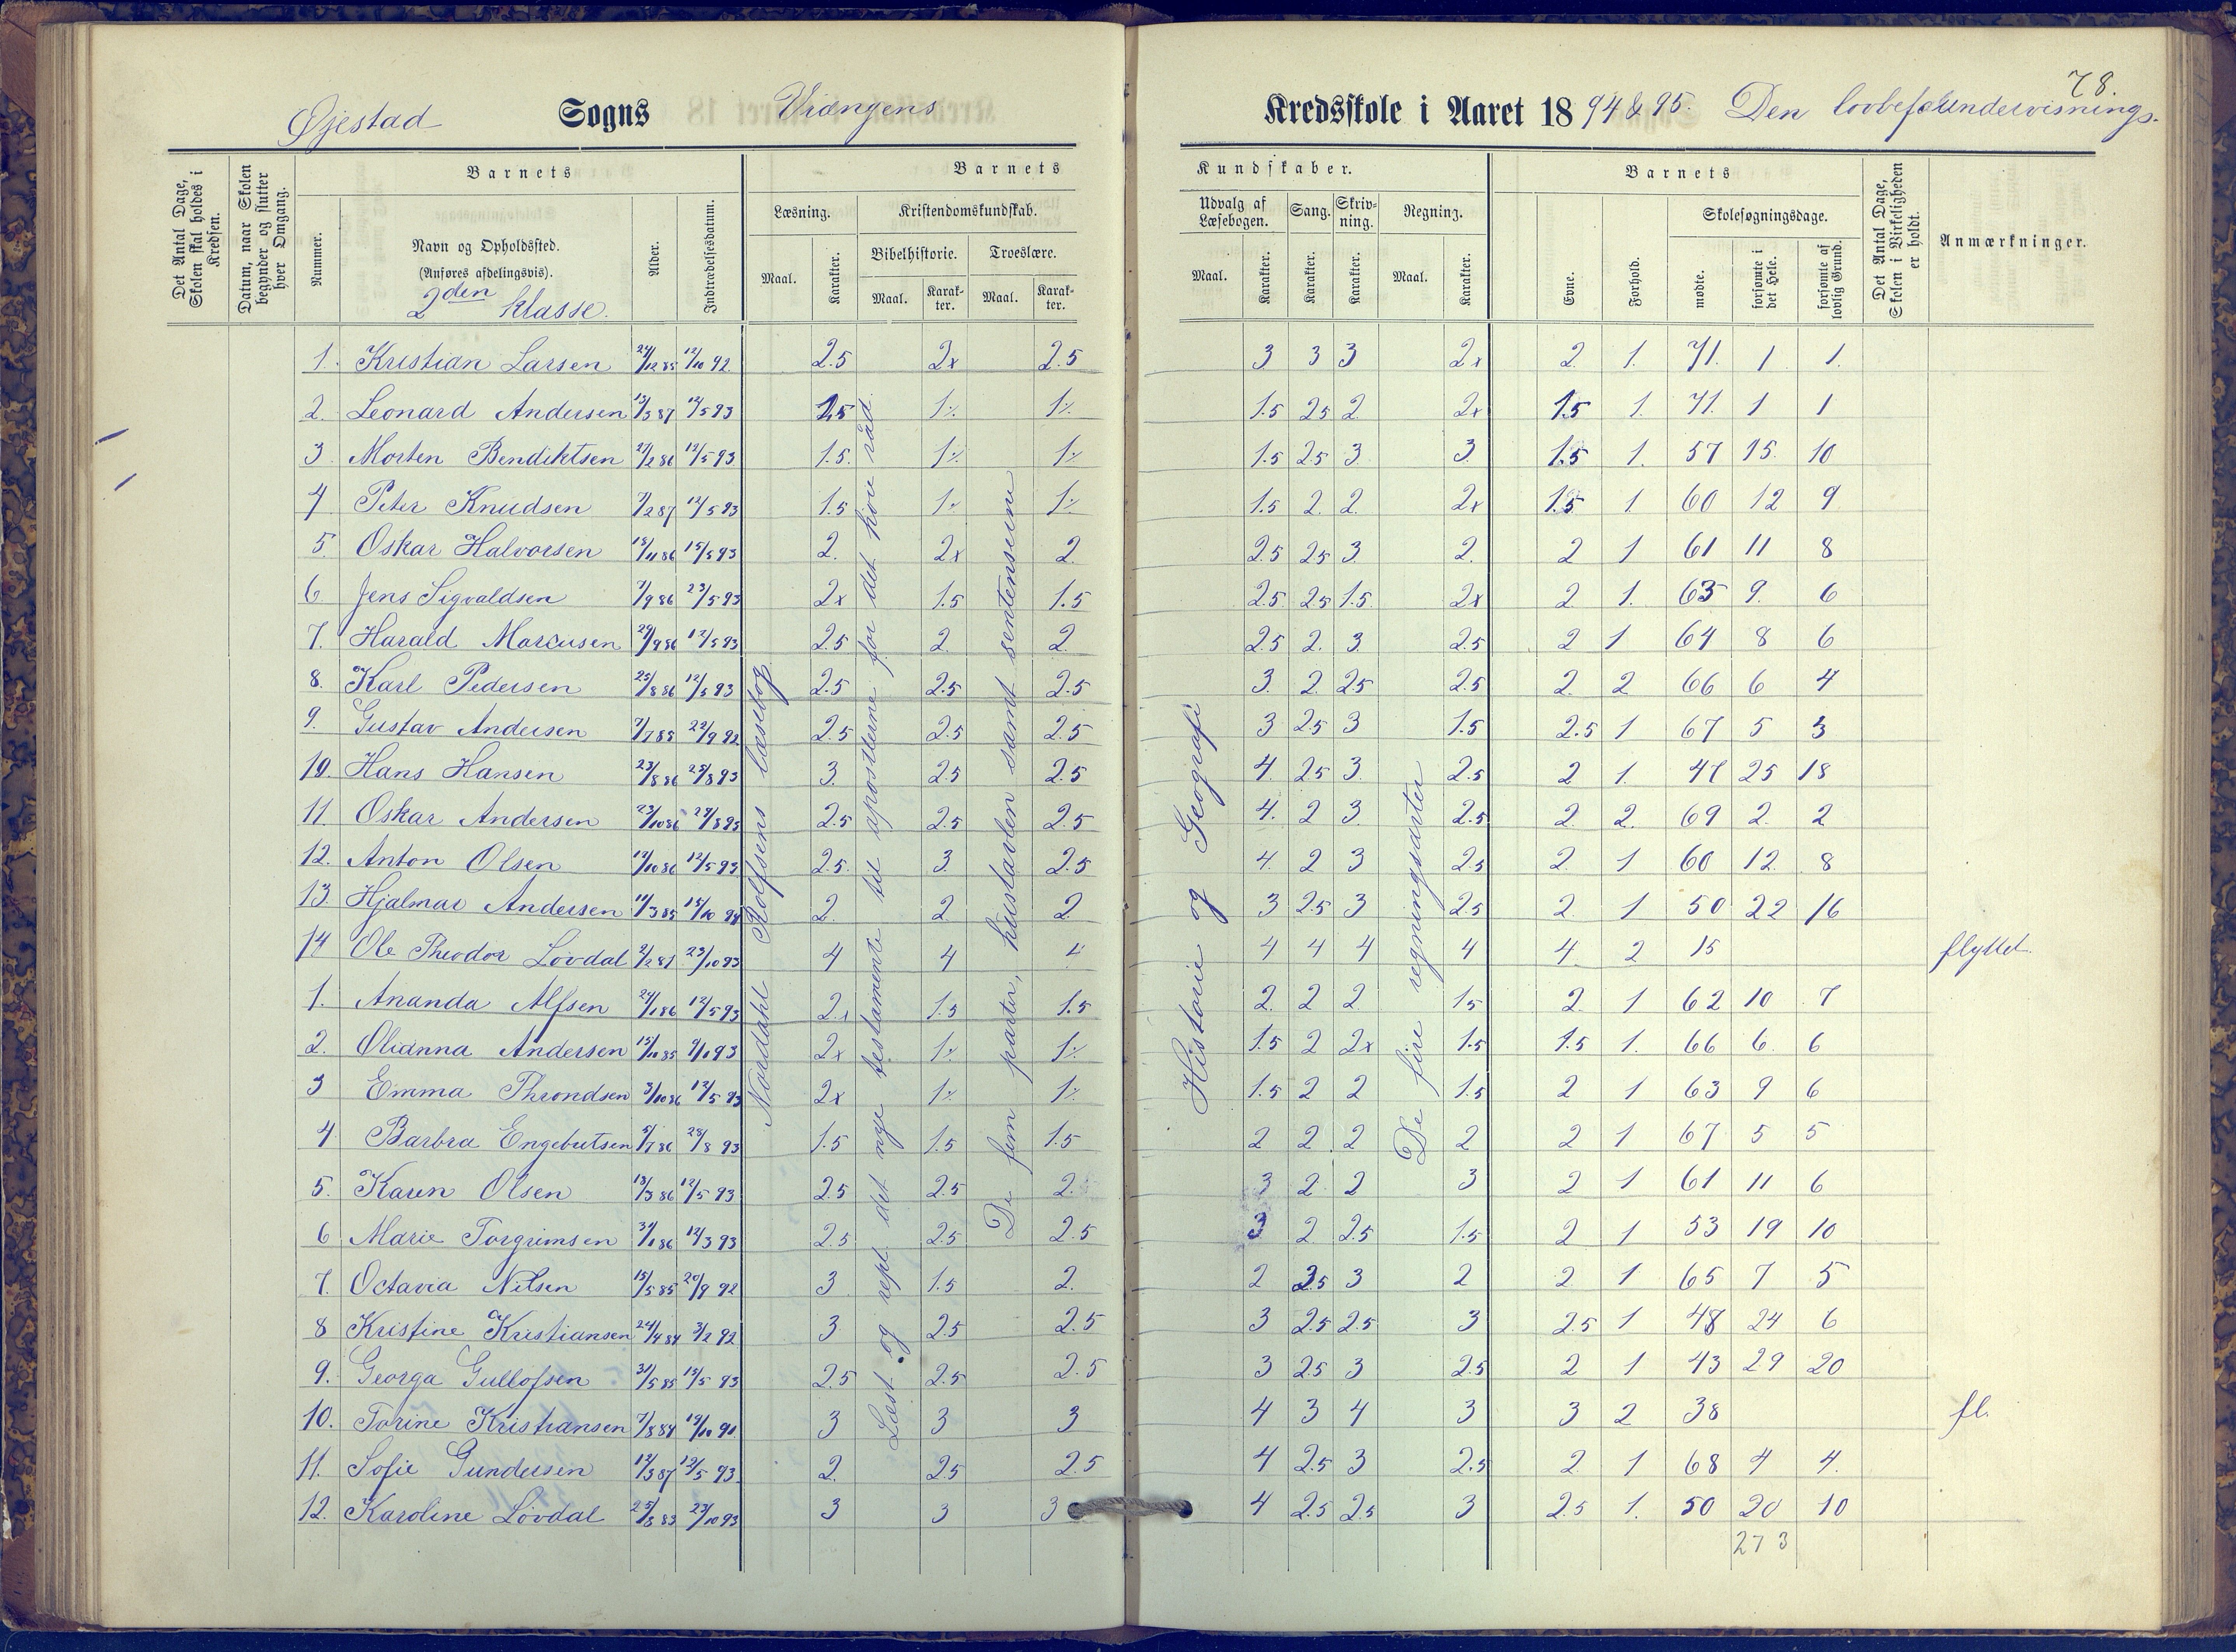 78.
Øjestad Sogns Vrængens Kredsskole i Aaret 1894 & 95. Den lovbefalede undervisnings.
Det Antal Dage, Skolen skal holdes i Kredsen.
Datum, naar Skolen begynder og slutter hver Omgang.
Barnets
Nummer.
Navn og Opholdssted.
(Anføres afdelingsvis).
2den klasse.
Alder.
Indtrædelsesdatum.
Barnets
Læsning.
Maal.
Karakter.
Kristendomskundskab.
Bibelhistorie.
Maal.
Karakter.
Troeslære.
Maal.
Karakter.
Kundskaber.
Udvalg af Læsebogen.
Maal.
Karakter.
Sang.
Karakter.
Skrivning.
Karakter.
Regning.
Maal.
Karakter.
Barnets
Evne.
Forhold.
Skolesøgningsdage.
mødte.
forsømte i det Hele.
forsømte af lovlig Grund.
Det Antal Dage, Skolen i Virkeligheden er holdt.
Anmærkninger.
Nordahl Rolfsens læsebog
Læst og rept. det nye testamente til apostlerne for det høie råd.
De fem parter, hustavlen samt sentenserne
Historie og Geografi
De fire regningsarter
1. Kristian Larsen 24/12 85 12/10 92. 2.5 2x 2.5 3 3 3 2x 2 1. 71. 1 1.
2. Leonard Andersen 13/3 87 12/5 93 2.5 1% 1% 1.5 25 2 2x 1.5 1. 71. 1 1
3 Morten Bendiktsen 27/2 86 12/5 93 1.5. 1% 1% 1.5 25 3 3. 1.5 1. 57 15. 10
4 Peter Knudsen 7/2 87 12/5 93 1.5 1% 1% 1.5 2. 2. 2x 1.5 1. 60 12 9
5 Oskar Halvorsen 18/11 86 15/5 93 2. 2x 2. 2.5 25 3. 2. 2 1 61 11 8
6. Jens Sigvaldsen 7/9 86 23/5 93 2x 1.5 1.5 2.5. 25 1.5. 2x 2 1. 63 9. 6
7. Harald Marcusen 29/9 86 12/5 93 2.5 2. 2. 2.5 2. 3. 2.5 2 1 64 8 6
8. Karl Pedersen 25/8 86 12/5 93 2.5 2.5 2.5 3. 2. 25 2.5 2. 2 66 6 4
9. Gustav Andersen 7/7 85 22/9 92 2.5 2.5 2.5 3 25 3 1.5 2.5 1 67 5 3
10. Hans Hansen 23/8 86 25/8 93 3. 2.5 2.5 4. 25 3. 2.5 2 1. 47 25 18
11. Oskar Andersen 23/10 86 29/8 93 2.5 2.5 2.5 4. 2 3. 2.5 2. 2. 69 2. 2
12. Anton Olsen 12/10 86 12/5 93 2.5. 3. 2.5 4. 2 3 2.5 2. 1 60 12. 8
13. Hjalmar Andersen 11/3 85 15/10 94 2. 2 2 3 2.5 3 2.5 2 1 50 22 16
14 Ole Theodor Lövdal 2/2 81 23/10 93 4 4 4 4 4 4 4 4 2 15 flyttet.
1. Ananda Alfsen 24/1 86 12/5 93 2x 1.5 1.5 2. 2 2 1.5 2. 1 62 10 7
2. Olianna Andersen 15/10 85 9/10 93 2x 1% 1% 1.5 2 2x 1.5 1.5 1. 66 6. 6
3 Emma Throndsen 3/10 86 12/5 93 2x 1% 1% 1.5 2 2 1.5 2 1 63 9 6
4 Barbra Engebretsen 5/7 86 28/8 93 1.5 1.5 1.5 2 2 2 2 2 1 67 5 5
5. Karen Olsen 13/3 86 12/5 93 2.5 2.5 2. 3 2 2 3 2 1 61 11 6
6 Marie Torgrimsen 31/1 86 12/3 93 2.5 2.5 2.5 3 2 2.5 1.5 2 1 53 19 10
7. Octavia Nilsen 15/5 85 20/9 92 3 1.5 2. 2 2.5 3 2 2 1 65 7 5
8 Kristine Kristiansen 24/4 84 3/2 92 3 2.5 2.5 3 2.5 2.5 3 2.5 1 48 24 6
9. Georga Gullofsen 31/5 85 15/5 93 2.5 2.5 2.5 3 2.5 3 2.5 2 1 43 29 20
10. Torine Kristiansen 7/8 84 19/10 91 3 3 3 4 3 4 3 3 2 38 fl.
11. Sofie Gundersen 12/3 87 12/5 93. 2. 2.5 2.5 4 2.5 3 2.5 2 1 68 4 4.
12. Karoline Lövdal 25/8 83 23/10 93 3 3 3 4 2.5 2.5 3 2.5 1. 50 20 10
273